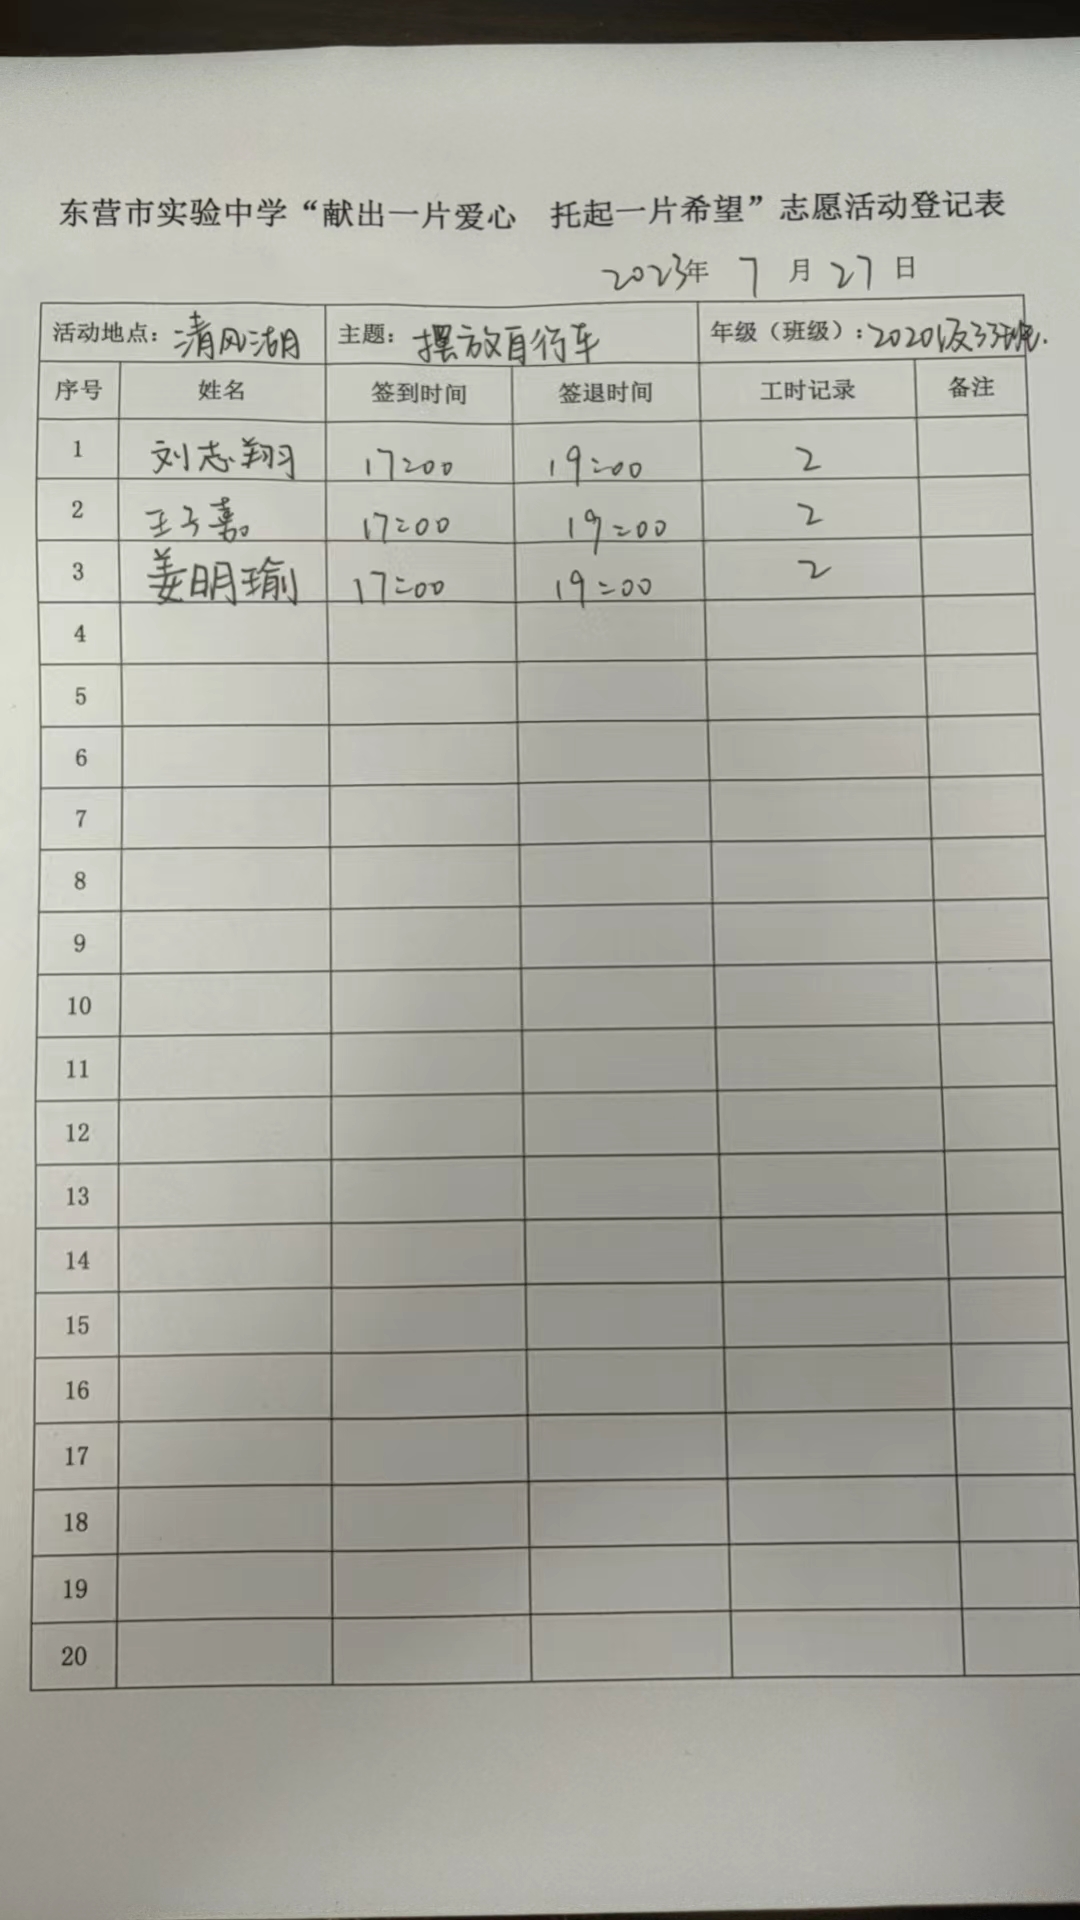 东营市实验中学“献出一片爱心　托起一片希望”志愿活动登记表
2023年 7 月 27 日
活动地点：清风湖 主题：摆放自行车 年级（班级）：2020级33班.
序号 姓名 签到时间 签退时间 工时记录 备注
1 刘志翔 17:00 19:00 2
2 王子嘉 17:00 19:00 2
3 姜明瑜 17:00 19:00 2
4
5
6
7
8
9
10
11
12
13
14
15
16
17
18
19
20